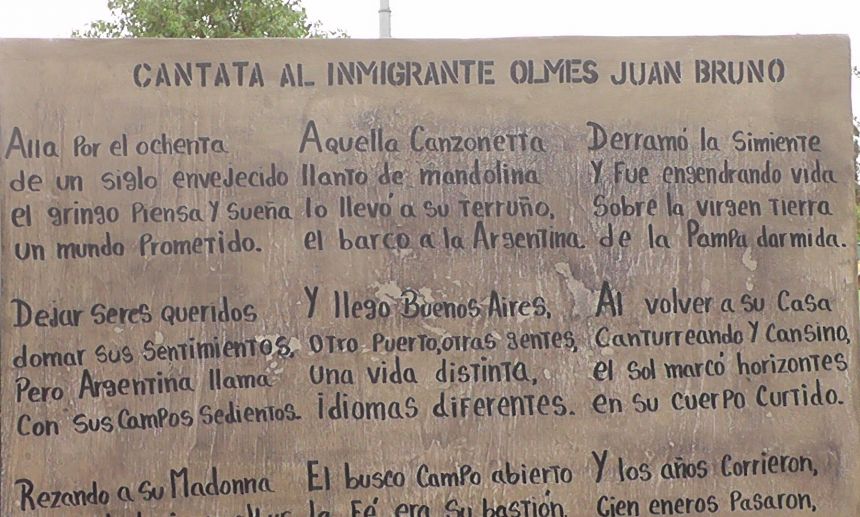 CANTATA AL INMIGRANTE OLMES JUAN BRUNO
Alla Por el ochenta
de un siglo envejecido
el gringo Piensa Y sueña
un mundo Prometido.
Dejar seres queridos
domar sus sentimientos,
Pero Argentina llama
Con sus Campos sedientos.
Rezando a su Madonna
Aquella Canzonetta
llanto de mandolina
lo llevó a su terruño,
el barco a la Argentina.
Y llego Buenos Aires,
otro Puerto, otras gentes,
una vida distinta,
idiomas diferentes.
El busco Campo abierto
la Fé era su bastión,
Derramó la simiente
Y Fue engendrando vida
Sobre la virgen tierra
de la Pampa darmida.
Al volver a su Casa
Canturreando Y Cansino,
el Sol marcó horizontes
en su cuerpo Curtido.
Y los años Corrieron,
Cien eneros Pasaron,